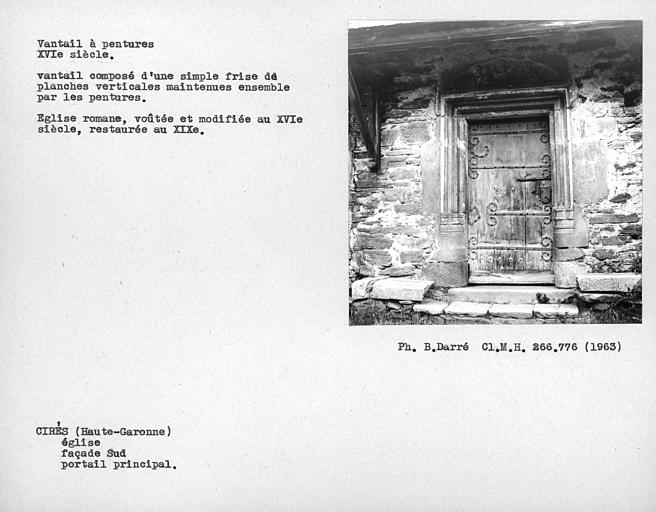 Vantail à pentures
XVIe siècle.
vantail composé d'une simple frise de
planches verticales maintenues ensemble
par les pentures.
Eglise romane, voûtée et modifiée au XVIe
siècle, restaurée au XIXe.
Ph. B.Darré Cl.M.H. 266.776 (1963)
CIRÉS (Haute-Garonne)
église
façade Sud
portail principal.